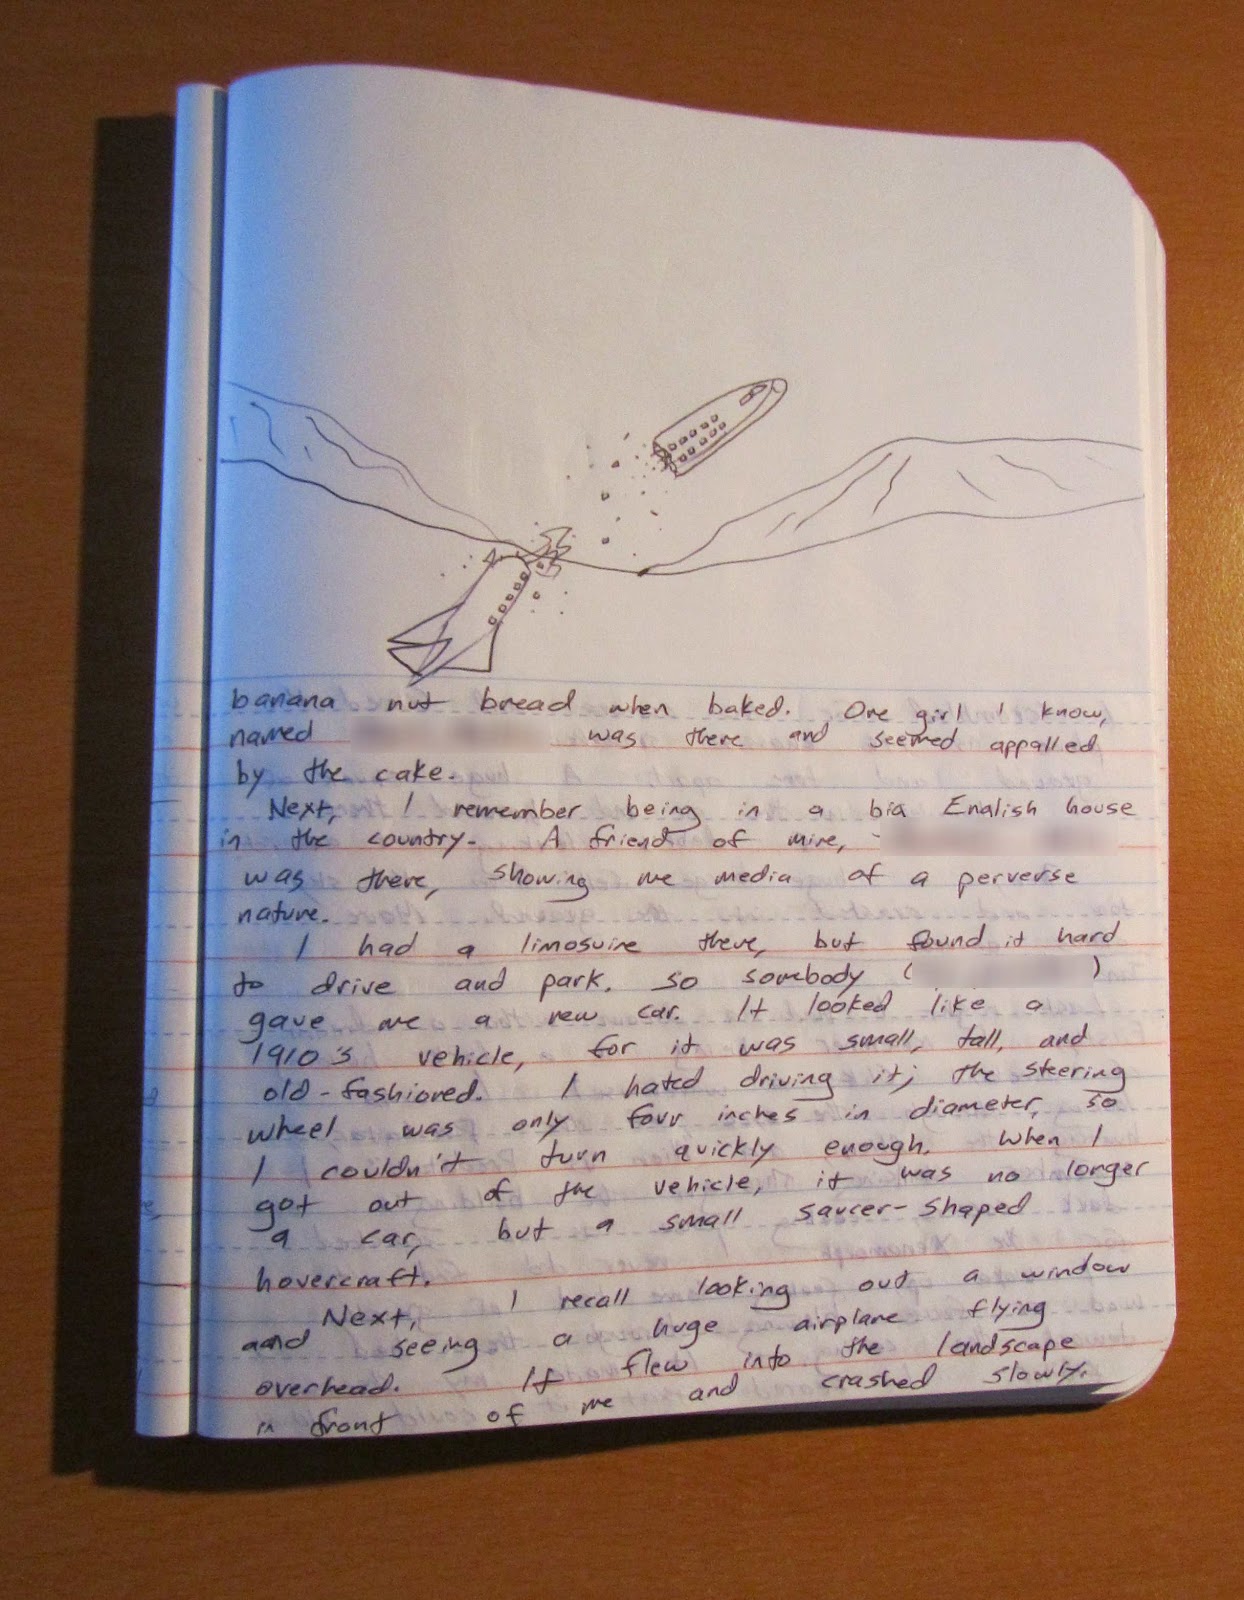 banana nut bread when baked. One girl I know,
named was there and seemed appalled
by the cake.
Next, I remember being in a big English house
in the country. A friend of mine,
was there, showing me media of a perverse
nature.
I had a limosuine there, but found it hard
to drive and park, so somebody ( )
gave me a new car. It looked like a
1910's vehicle, for it was small, tall, and
old-fashioned. I hated driving it; the steering
wheel was only four inches in diameter, so
I couldn't turn quickly enough. When I
got out of the vehicle, it was no longer
a car, but a small saucer-shaped
hovercraft.
Next, I recall looking out a window
aand seeing a huge airplane flying
overhead. It flew into the landscape
in front of me and crashed slowly.